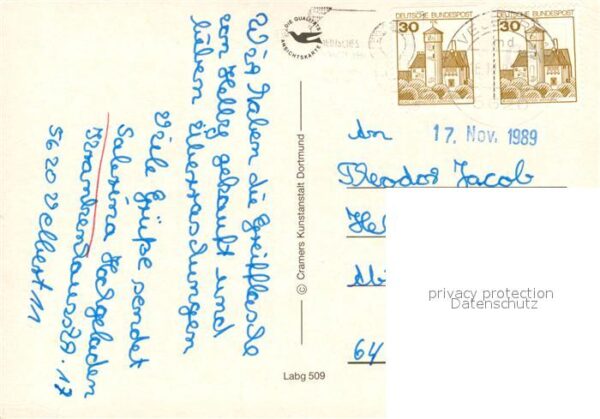 Wir haben die Greifflasche
von Helbig gekauft und
lieben Überraschungen
Viele Grüße sendet
Sabrina Hochgeladen
Krankenhausstr. 17
5620 Velbert 11
DIE QUALITÄTS
ANSICHTSKARTE
© Cramers Kunstanstalt Dortmund
Labg 509
DEUTSCHE BUNDESPOST
30
DEUTSCHE BUNDESPOST
30
17. Nov. 1989
An
Theodor Jacob
64
privacy protection
Datenschutz